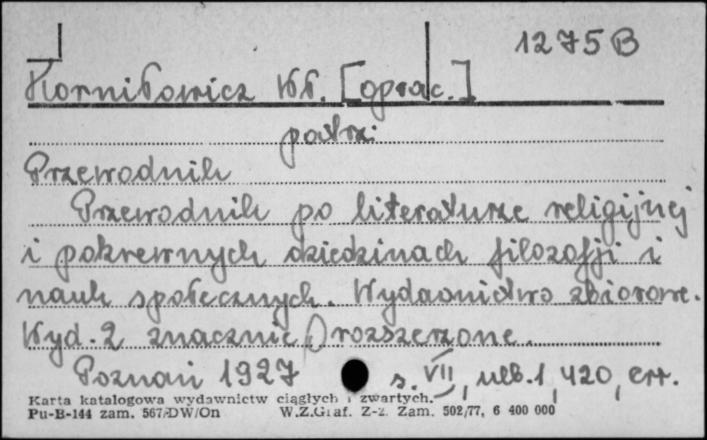 1275 B
Korniłowicz Wł. [oprac.]
patrz:
Przewodnik
Przewodnik po literaturze religijnej
i pokrewnych dziedzinach filozofji i
nauk społecznych. Wydawnictwo zbiorowe.
Wyd. 2 znacznie rozszerzone.
Poznań 1927 s. VII, nlb. 1, 420, err.
Karta katalogowa wydawnictw ciągłych i zwartych.
Pu-B-144 zam. 567/DW/On W.Z.Graf. Z-z. Zam. 502/77, 6 400 000